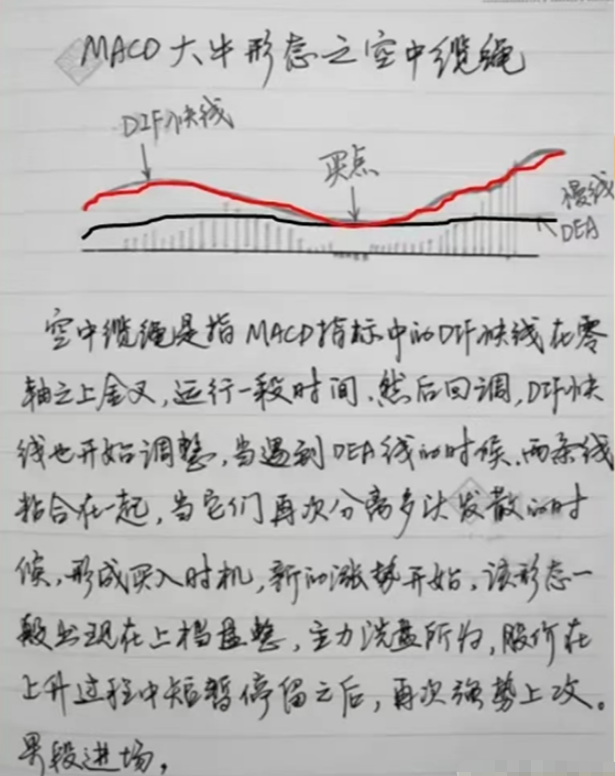 MACD大牛形态之空中缆绳
DIF快线
买点
慢线
DEA
空中缆绳是指MACD指标中的DIF快线在零
轴之上金叉,运行一段时间,然后回调,DIF快
线也开始调整,当遇到DEA线的时候,两条线
粘合在一起,当它们再次分离多头发散的时
候,形成买入时机,新的涨势开始,该形态一
般出现在上档盘整,主力洗盘所为,股价在
上升过程中短暂停留之后,再次强势上攻。
果段进场,